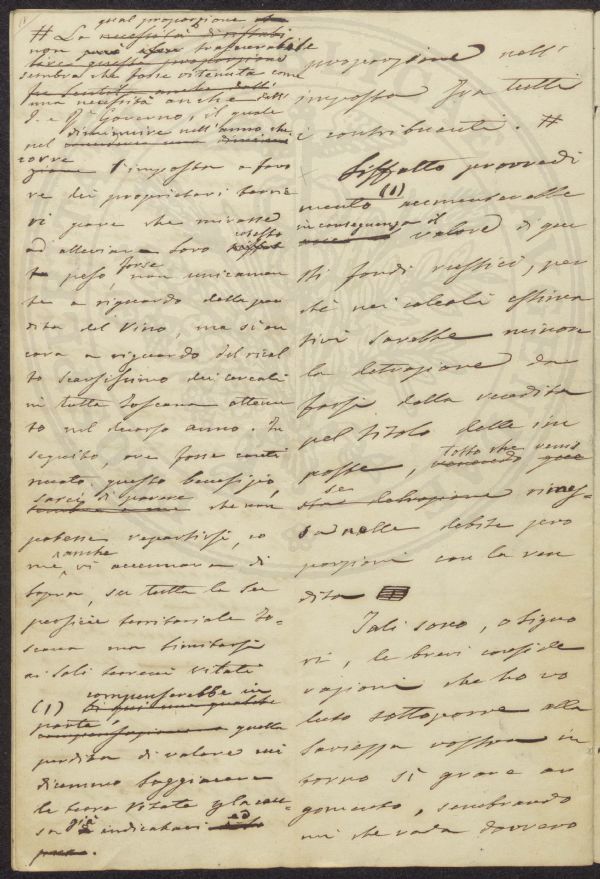 qual proporzione
# La necessità di siffatti
non trascurabile
questa proporzione
sembra che fosse ritenuta come
una necessità anche dall'
I. e R. Governo, il quale
diminuire nell'anno che
nel
corre
l'imposta a favo
re dei proprietari terrie
ri pare che mirasse
ad alleviare loro cotesto
peso, forse non unicamen
te a riguardo della per
dita del vino, ma si an
cora a riguardo del ricol
to scarsissimo dei cereali
in tutta Toscana ottenu
to nel decorso anno. In
seguito, ove fosse conti
nuato questo beneficio,
sarei di parere che non
potesse repartirsi, co
me, vi accennava di
sopra, su tutta la su
perficie territoriale To=
scana ma limitarsi
ai soli terreni vitati
(1) compenserebbe in
parte, quella
perdita di valore cui
dicemmo soggiacere
le terre vitate per la cau-
sa già indicata
proporzione nell'
imposta fra tutti
i contribuenti. #
Siffatto provvedi
mento (1) aumenterebbe
in conseguenza il valore di que
sti fondi rustici, per
chè nei calcoli estima
tivi sarebbe minore
la detrazione da
farsi dalla rendita
pel titolo delle im
poste, tosto che venis
se detrazione rimes-
sa nelle debite pro
porzioni con la ren
dita
Tali sono, o signo
ri, le brevi conside
razioni che ho vo
luto sottoporre alla
saviezza vostra in
torno sì grave ar
gomento, sembrando
mi che vada davvero